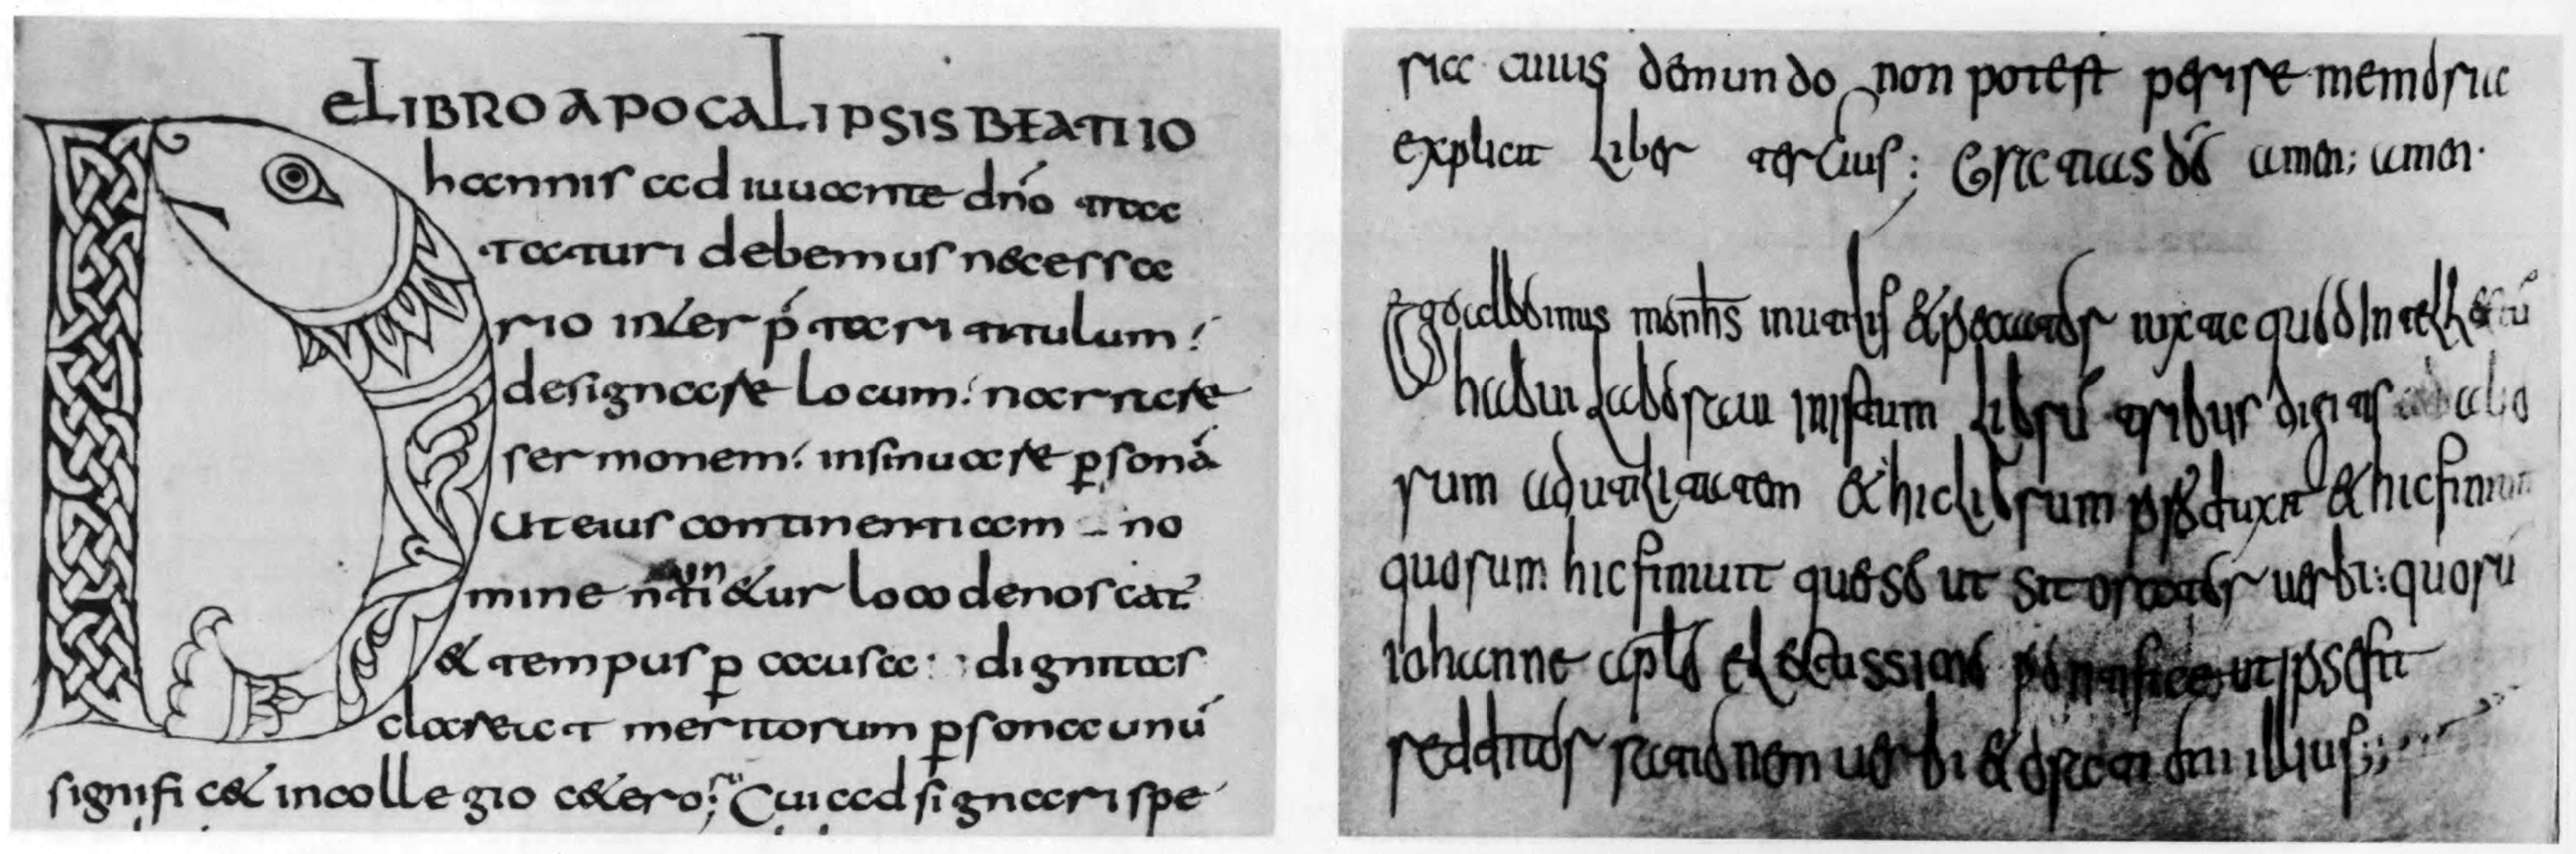 DE LIBRO APOCALIPSIS BEATI IO
hannis ad iuuante dño trac
taturi debemus necessa
rio interp̃tari titulum;
designare locum; narrare
sermonem; insinuare ꝑsonã
Ut eius continentiam no
mine nun&ur loco denoscat̃
& tempus ꝑ causa: dignitas
clareat meritorum ꝑsona unũ
signific& in collegio c&ero; Cui adsignari spe
ria cuius demundo non potest perire memoria
explicit liber tertius; Gratias dõ amen; amen.
Ego aldoinus inutilis & peccator iuxta quod intell&ũ
habui laboraui in istum librũ tribus digitis
rum ad utilitatem & hic librum produxit & hic finiuit
quorum hic finiuit queso ut sit orator uerbi: quorũ
iohanne aplo electissione pontifice ut ipse sit
redditor rationem uerbi & oration illius;